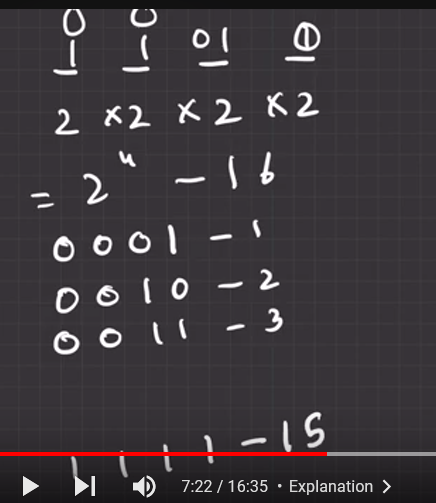 0 0
1 1 01 ①
2 × 2 × 2 × 2
= 2⁴ - 16
0 0 0 1 - 1
0 0 1 0 - 2
0 0 1 1 - 3
1 1 1 1 - 15
7:22 / 16:35 • Explanation >